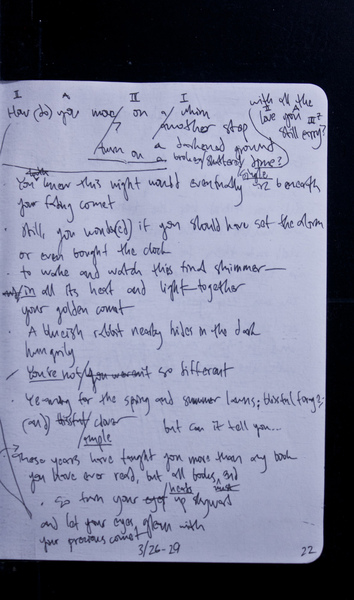 II A II I
with all the
How (do) you move on a whim
love you
another stop
still enjoy?
turn on a darkened ground
broken/shuttered dime?
single
You knew this night would eventually beneath
your fading comet
Still, you wonde(d) if you should have set the alarm
or even bought the clock
to wake and watch this final shimmer—
in all its heat and light together
your golden comet
A blueish rabbit nearby hides in the dark
hungrily
You're not/you weren't so different
for the spring and summer lawns,
(and) clover but can it tell you...
ample
These years have taught you more than any book
you have ever read, but all bodies, end
heads must
so turn your up skyward
and let your eyes, gleam with
your precious comet
3/26-29 22